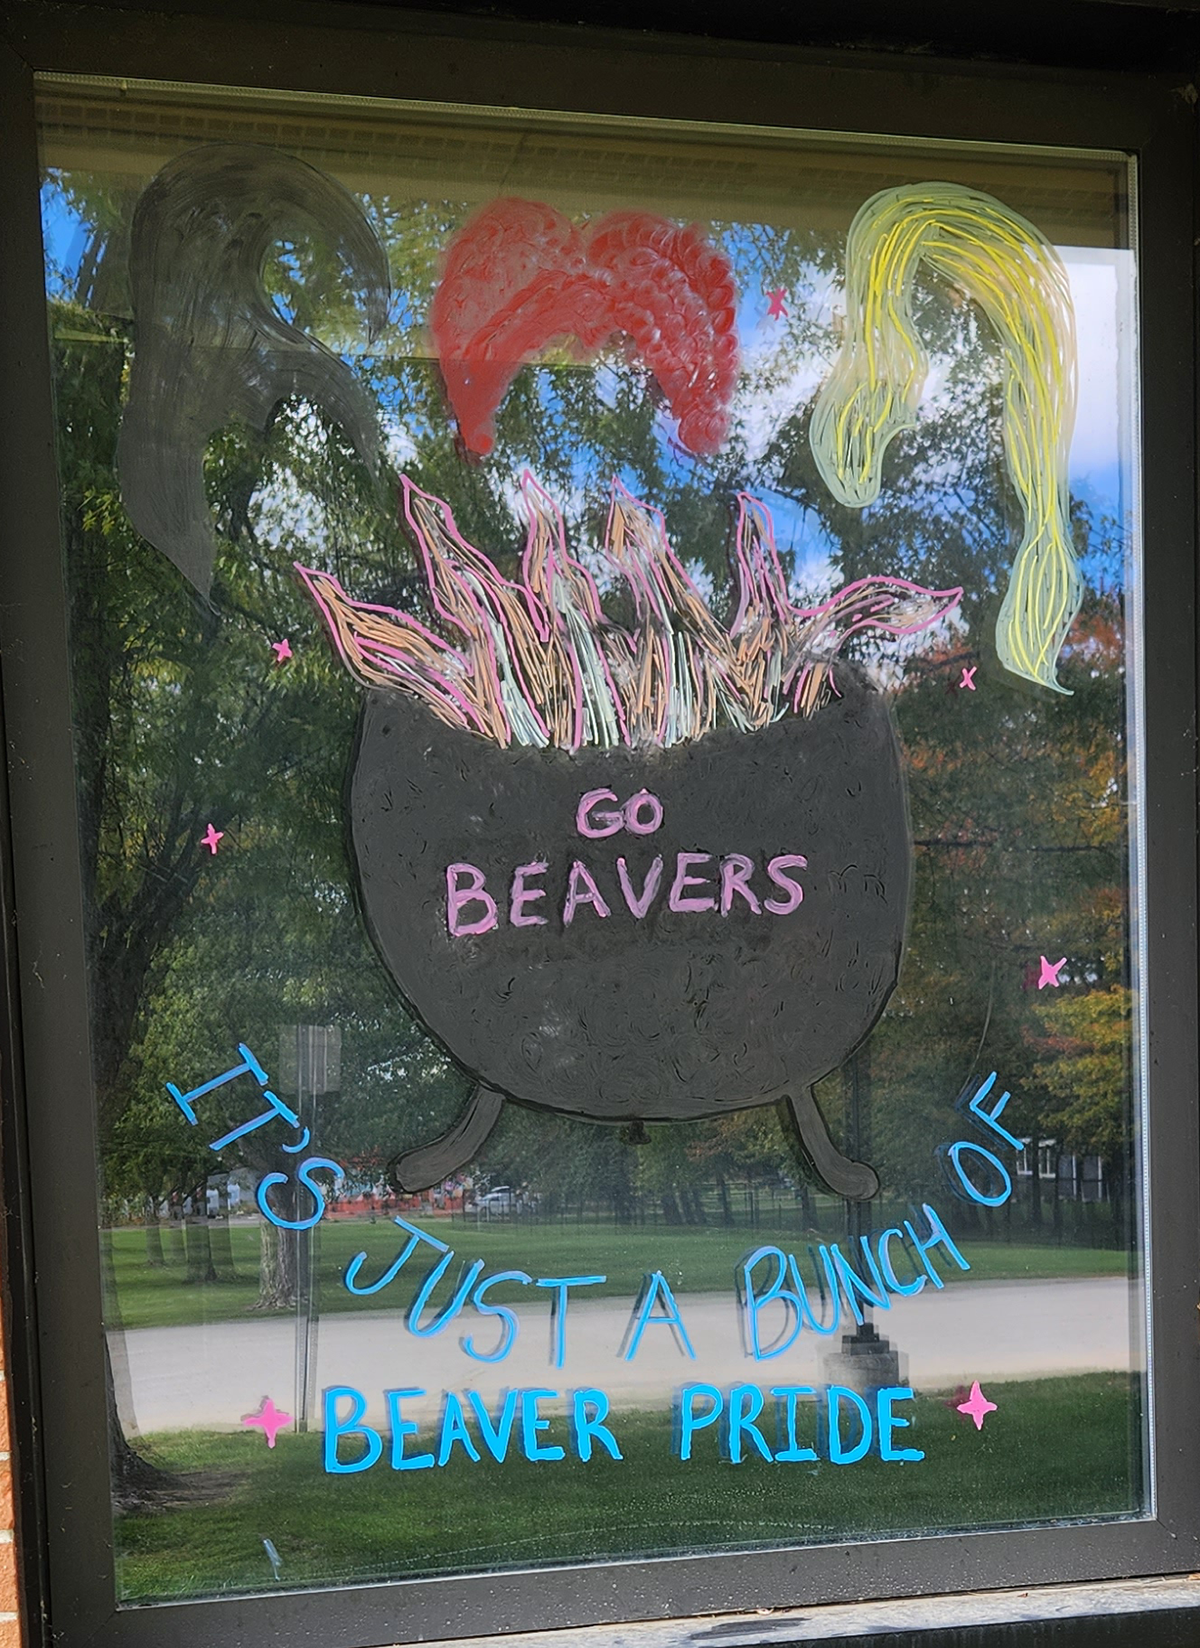 GO
BEAVERS
IT'S JUST A BUNCH OF
BEAVER PRIDE